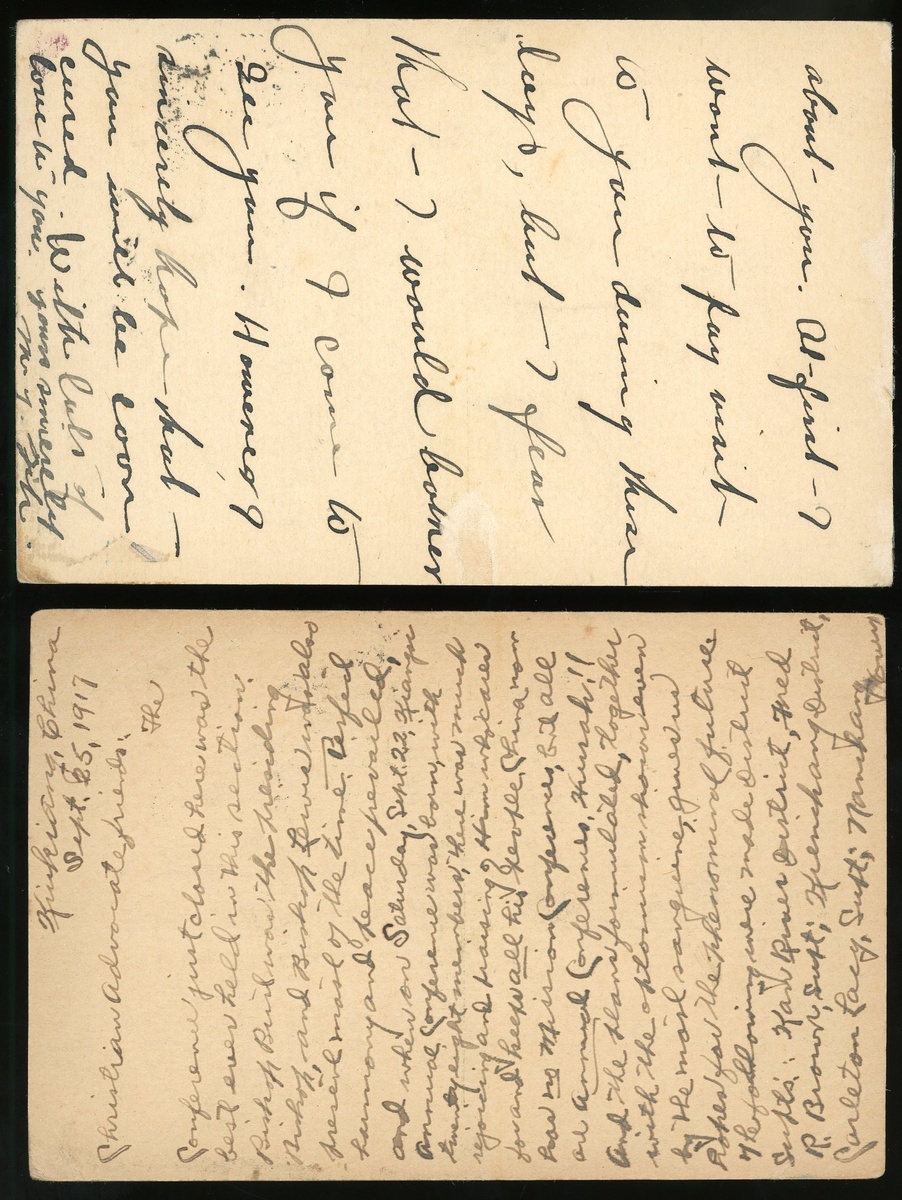 about you. At first I
want to pay visit
to you during these
days, but I fear
that I would bother
you if I come to
see you. However I
sincerely hope that
you will be soon
cured. With lots of
love to you. yours sincerely
Kiukiang, China
Sept. 25, 1917
Christian Advocate frieds: The
Conference just closed here was the
best ever held in this section.
Bishop Burt was the presiding
Bishop, and Bishop Lewis was also
present most of the time. Perfect
harmony and peace prevailed,
and when on Saturday, Sept. 22, Kiangsi
Annual Conference was born, with
twenty eight members, there was much
rejoicing and praising Him who cares
for and keeps all his people. China now
has no Mission Conferences, but all
are annual Conferences. Hurrah!!
And the plans formulated, together
with the optimism shown even
by the most sanguine, gives us
hopes for the phenominal future.
The following were made District
Supts.: Kan River District, Fred
R. Brown, Supt; Kienchang District,
Carleton Lacy, Supt; Nanchang